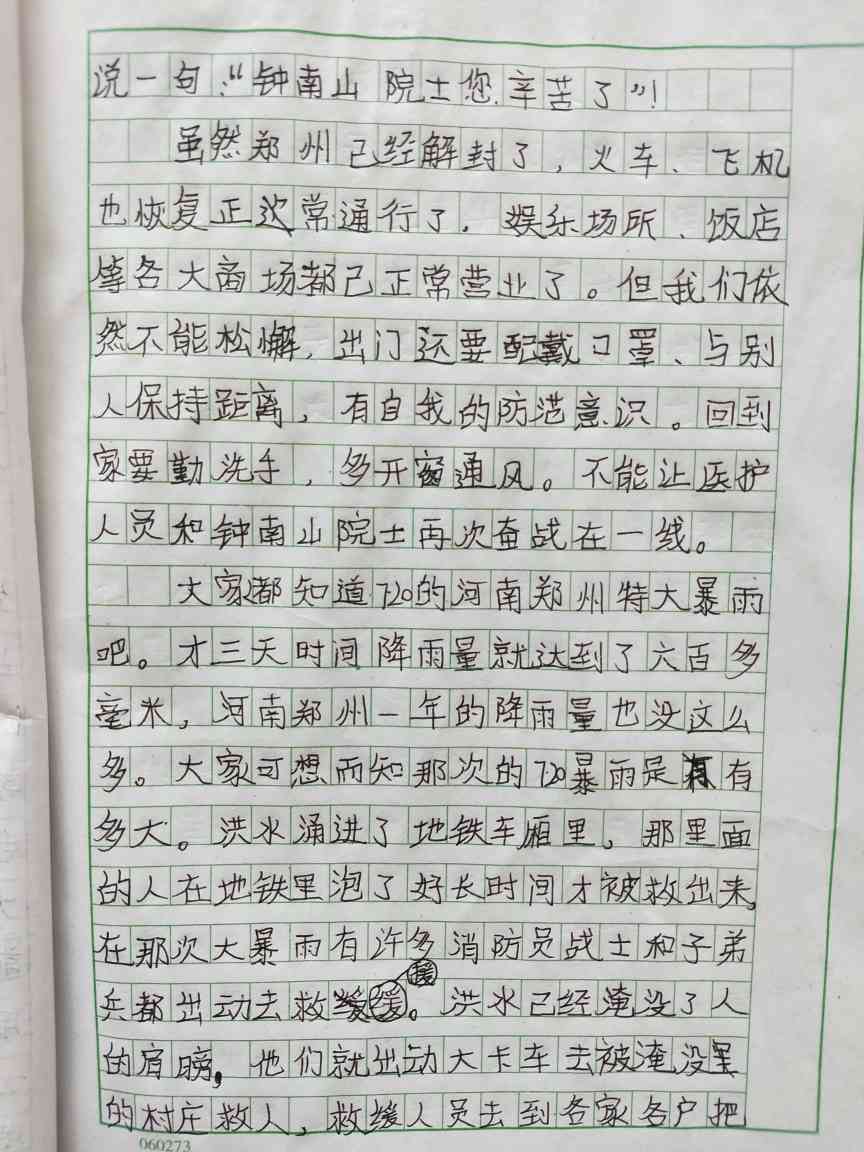 说一句:“钟南山院士您辛苦了”!
虽然郑州已经解封了,火车、飞机
也恢复正常通行了.娱乐场所、饭店
等各大商场都已正常营业了。但我们依
然不能松懈,出门还要配戴口罩、与别
人保持距离,有自我的防范意识。回到
家要勤洗手,多开窗通风。不能让医护
人员和钟南山院士再次奋战在一线。
大家都知道720的河南郑州特大暴雨
吧。才三天时间降雨量就达到了六百多
毫米,河南郑州一年的降雨量也没这么
多。大家可想而知那次的720暴雨是有
多大。洪水涌进了地铁车厢里,那里面
的人在地铁里泡了好长时间才被救出来,
在那次大暴雨有许多消防员战士和子弟
兵都出动去救援。洪水已经淹没了人
的肩膀,他们就出动大卡车去被淹没
的村庄救人,救缓人员去到各家各户把
060273